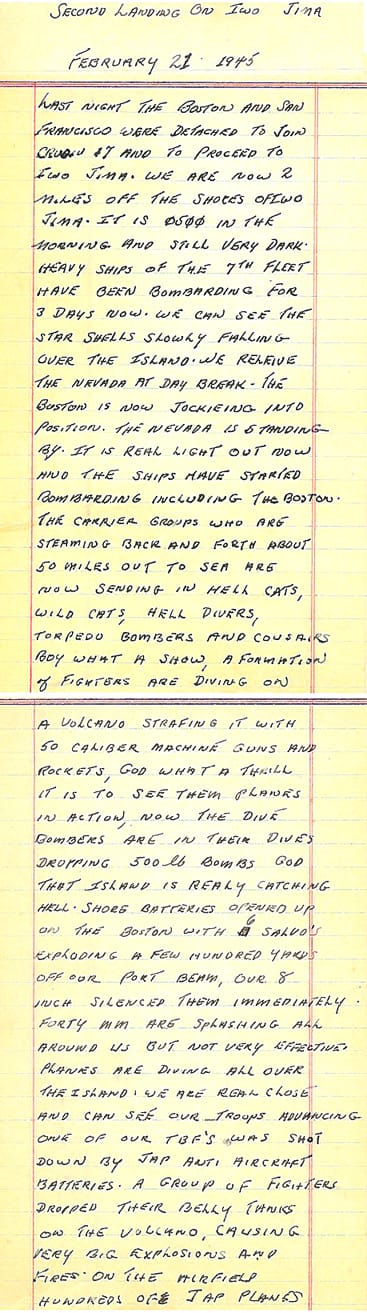 SECOND LANDING ON IWO JIMA
FEBRUARY 21 1945
LAST NIGHT THE BOSTON AND SAN
FRANCISCO WERE DETACHED TO JOIN
CRUDIV 17 AND TO PROCEED TO
IWO JIMA. WE ARE NOW 2
MILES OFF THE SHORES OF IWO
JIMA. IT IS 0500 IN THE
MORNING AND STILL VERY DARK.
HEAVY SHIPS OF THE 7TH FLEET
HAVE BEEN BOMBARDING FOR
3 DAYS NOW. WE CAN SEE THE
STAR SHELLS SLOWLY FALLING
OVER THE ISLAND. WE RELEIVE
THE NEVADA AT DAY BREAK. THE
BOSTON IS NOW JOCKIEING INTO
POSITION. THE NEVADA IS STANDING
BY. IT IS REAL LIGHT OUT NOW
AND THE SHIPS HAVE STARTED
BOMBARDING INCLUDING THE BOSTON.
THE CARRIER GROUPS WHO ARE
STEAMING BACK AND FORTH ABOUT
50 MILES OUT TO SEA ARE
NOW SENDING IN HELL CATS,
WILD CATS, HELL DIVERS,
TORPEDO BOMBERS AND COUSAIRS
BOY WHAT A SHOW, A FORMATION
of FIGHTERS ARE DIVING ON
A VOLCANO STRAFING IT WITH
50 CALIBER MACHINE GUNS AND
ROCKETS, GOD WHAT A THRILL
IT IS TO SEE THEM PLANES
IN ACTION, NOW THE DIVE
BOMBERS ARE IN THEIR DIVES
DROPPING 500 lb BOMBS GOD
THAT ISLAND IS REALY CATCHING
HELL. SHORE BATTERIES OPENED UP
ON THE BOSTON WITH 6 SALVO'S
EXPLODING A FEW HUNDRED YARDS
OFF OUR PORT BEAM, OUR 8
INCH SILENCED THEM IMMEDIATELY.
FORTY MM ARE SPLASHING ALL
AROUND US BUT NOT VERY EFFECTIVE.
PLANES ARE DIVING ALL OVER
THE ISLAND. WE ARE REAL CLOSE
AND CAN SEE OUR TROOPS ADVANCING
ONE OF OUR TBF'S WAS SHOT
DOWN BY JAP ANTI AIRCRAFT
BATTERIES. A GROUP OF FIGHTERS
DROPPED THEIR BELLY TANKS
ON THE VOLCANO, CAUSING
VERY BIG EXPLOSIONS AND
FIRES. ON THE AIRFIELD
HUNDREDS OF JAP PLANES